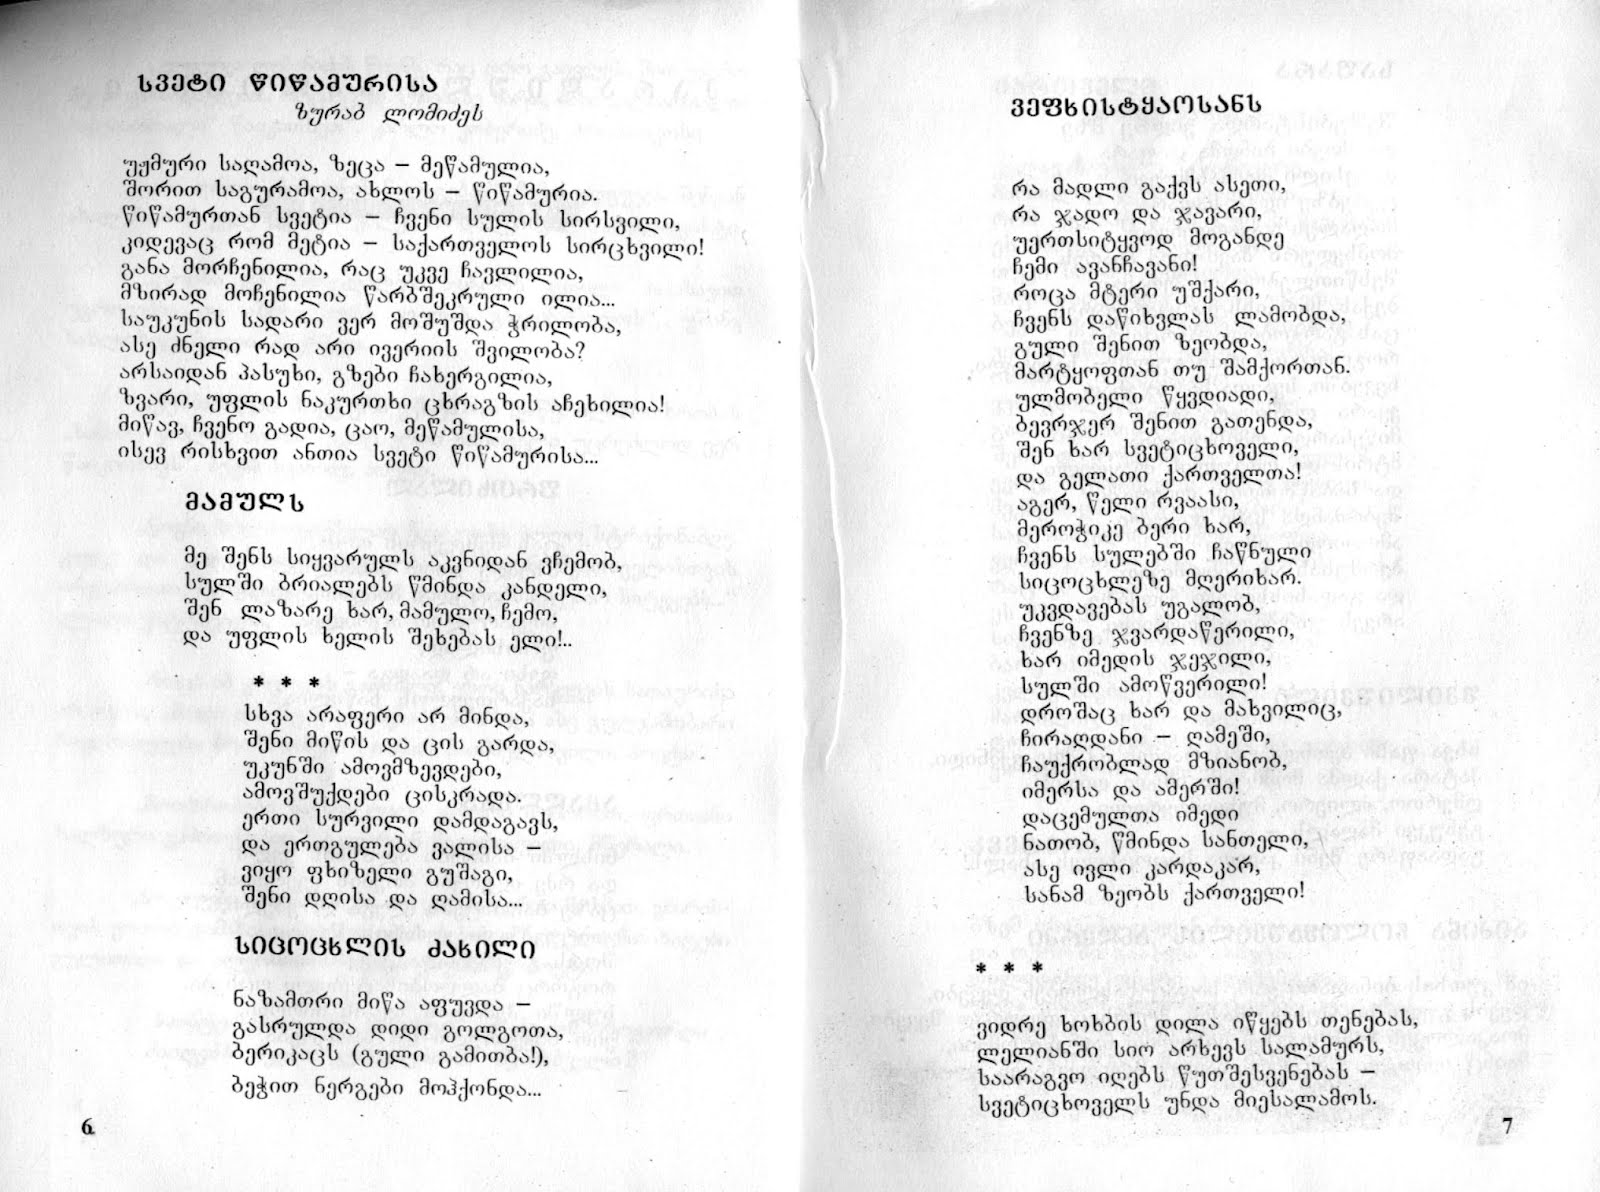 სვეტი წიწამურისა
ზურაბ ლომიძეს
უჟმური საღამოა, ზეცა – მეწამულია,
შორით საგურამოა, ახლოს – წიწამურია.
წიწამურთან სვეტია – ჩვენი სულის სირსვილი,
კიდევაც რომ მეტია – საქართველოს სირცხვილი!
განა მორჩენილია, რაც უკვე ჩავლილია,
მზირად მოჩენილია წარბშეკრული ილია...
საუკუნის სადარი ვერ მოშუშდა ჭრილობა,
ასე ძნელი რად არი ივერიის შვილობა?
არსაიდან პასუხი, გზები ჩახერგილია,
ზვარი, უფლის ნაკურთხი ცხრაგზის აჩეხილია!
მიწავ, ჩვენო გადია, ცაო, მეწამულისა,
ისევ რისხვით ანთია სვეტი წიწამურისა...
მამულს
მე შენს სიყვარულს აკვნიდან ვჩემობ,
სულში ბრიალებს წმინდა კანდელი,
შენ ლაზარე ხარ, მამულო, ჩემო,
და უფლის ხელის შეხებას ელი!..
* * *
სხვა არაფერი არ მინდა,
შენი მიწის და ცის გარდა,
უკუნში ამოვმზევდები,
ამოვშუქდები ცისკრადა.
ერთი სურვილი დამდაგავს,
და ერთგულება ვალისა –
ვიყო ფხიზელი გუშაგი,
შენი დღისა და ღამისა...
სიცოცხლის ძახილი
ნაზამთრი მიწა აფუვდა –
გასრულდა დიდი გოლგოთა,
ბერიკაცს (გული გამითბა!),
ბეჭით ნერგები მოჰქონდა...
6
ვეფხისტყაოსანს
რა მადლი გაქვს ასეთი,
რა ჯადო და ჯავარი,
უერთსიტყვოდ მოგანდე
ჩემი ავანჩავანი!
როცა მტერი უშქარი,
ჩვენს დაწიხვლას ლამობდა,
გული შენით ზეობდა,
მარტყოფთან თუ შამქორთან.
ულმობელი წყვდიადი,
ბევრჯერ შენით გათენდა,
შენ ხარ სვეტიცხოველი,
და გელათი ქართველთა!
აგერ, წელი რვაასი,
მეროჭიკე ბერი ხარ,
ჩვენს სულებში ჩაწნული
სიცოცხლეზე მღერიხარ.
უკვდავებას უგალობ,
ჩვენზე ჯვარდაწერილი,
ხარ იმედის ჯეჯილი,
სულში ამოწვერილი!
დროშაც ხარ და მახვილიც,
ჩირაღდანი – ღამეში,
ჩაუქრობლად მზიანობ,
იმერსა და ამერში!
დაცემულთა იმედი
ნათობ, წმინდა სანთელი,
ასე ივლი კარდაკარ,
სანამ ზეობს ქართველი!
* * *
ვიდრე ხოხბის დილა იწყებს თენებას,
ლელიანში სიო არხევს სალამურს,
საარაგვო იღებს წუთშესვენებას –
სვეტიცხოველს უნდა მიესალამოს.
7